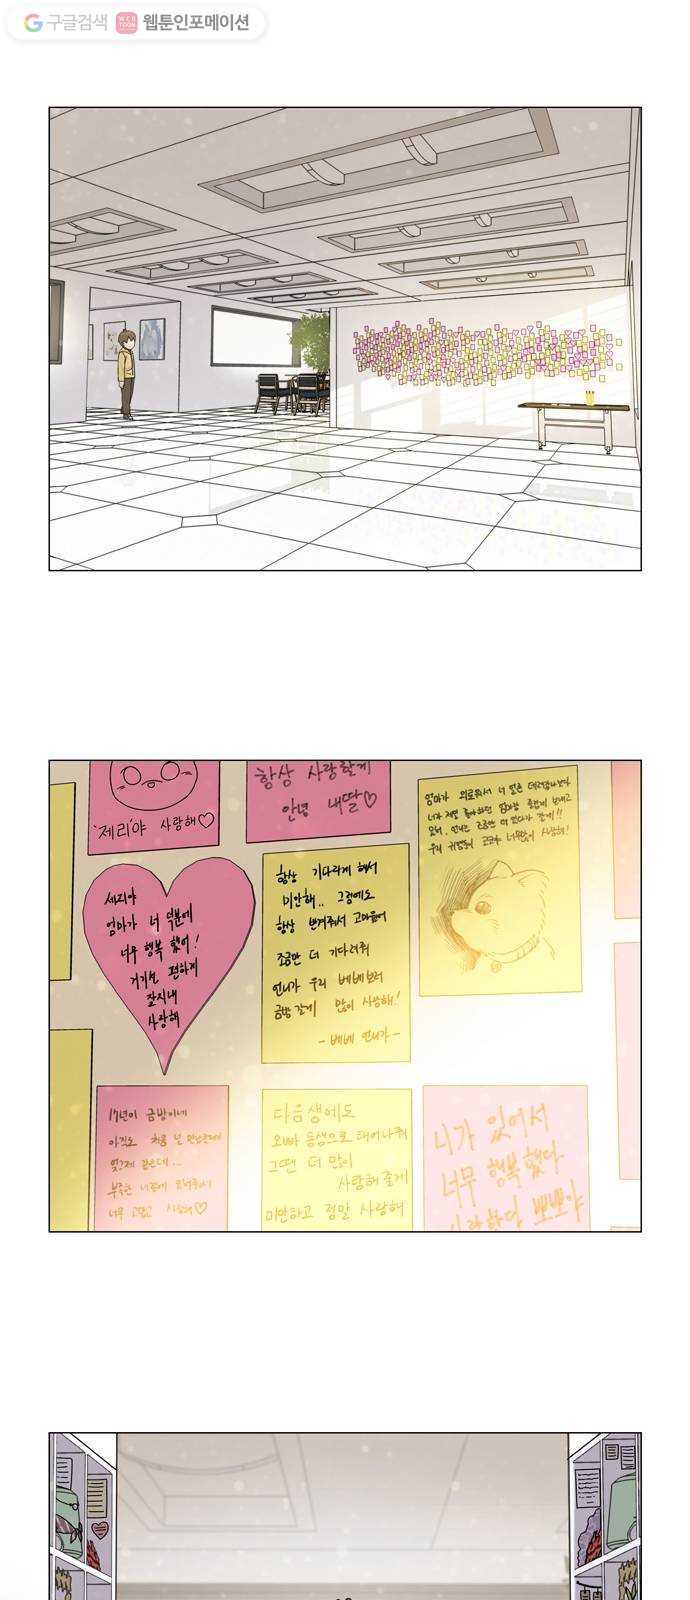 구글검색 웹툰인포메이션
'제리'야 사랑해♡
항상 사랑할게
안녕 내딸♡
엄마가 외로워서 너 일찍
우리 너무많이 사랑해!
세리야
엄마가 너 덕분에
너무 행복 했어!
거기선 편하게
잘지내
사랑해
항상 기다리게 해서
미안해.. 그럼에도
항상 반겨줘서 고마웠어
조금만 더 기다려줘
언니가 우리 베베보러
금방 갈게 많이 사랑해!
- 베베 언니가 -
17년이 금방이네
아직도 처음 널 만났던때가
엊그제 같은데...
부족한 나한테 와줘서
너무 고맙고 사랑해♡
다음생에도
오빠 동생으로 태어나줘
그땐 더 많이
사랑해줄게
미안하고 정말 사랑해
니가 있어서
너무 행복했다
사랑한다 뽀뽀야